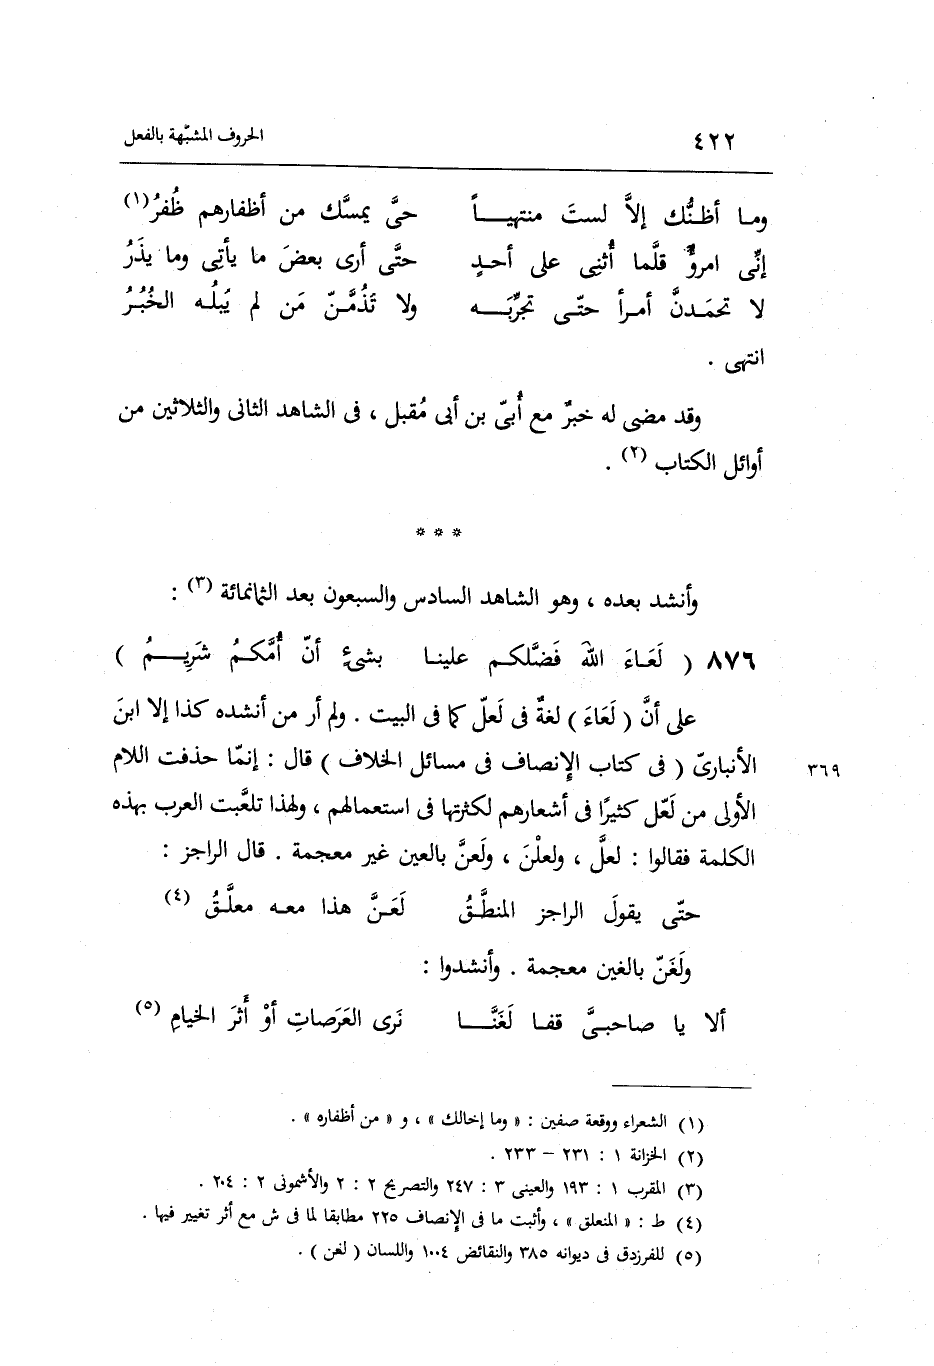 ٤٢٢ الحروف المشبّهة بالفعل
وما أظنُّك إلاَّ لستَ منتهياً حتَّى يمسَّك من أظفارهم ظُفرُ(١)
إنِّى امروٌ قلَّما أُثنِى على أحدٍ حتَّى أرى بعضَ ما يأتِى وما يذَرُ
لا تحمَدنَّ أمرأ حتّى تجرِّبَه ولا تَذُمَّنّ مَن لم يَبلُه الخُبُرُ
انتهى .
وقد مضى له خبرٌ مع أُبىّ بن أبى مُقبل ، فى الشاهد الثانى والثلاثين من
أوائل الكتاب (٢) .
* * *
وأنشد بعده ، وهو الشاهد السادس والسبعون بعد الثمانمائة (٣) :
٨٧٦ ( لَعَاءَ اللهَ فَضَّلكم علينا بشىءٍ أنّ أُمَّكمُ شَرِيمُ )
على أنَّ ( لَعَاءَ ) لغةٌ فى لَعلّ كما فى البيت . ولم أر من أنشده كذا إلا ابنَ
الأنبارىّ ( فى كتاب الإنصاف فى مسائل الخلاف ) قال : إنمّا حذفت اللام ٣٦٩
الأولى من لَعّل كثيرًا فى أشعارهم لكثرتها فى استعمالهم ، ولهذا تلعَّبت العرب بهذه
الكلمة فقالوا : لعلَّ ، ولعلْنَ ، ولَعنَّ بالعين غير معجمة . قال الراجز :
حتّى يقولَ الراجز المنطَّقُ لَعَنَّ هذا معه معلَّقُ (٤)
ولَغَنّ بالغين معجمة . وأنشدوا :
ألا يا صاحبىَّ قفا لَغَنَّا نَرى العَرَصاتِ أوْ أَثرَ الخيامِ (٥)
(١) الشعراء ووقعة صفين : « وما إخالك » ، و « من أظفاره » .
(٢) الخزانة ١ : ٢٣١ – ٢٣٣ .
(٣) المقرب ١ : ١٩٣ والعينى ٣ : ٢٤٧ والتصريح ٢ : ٢ والأشمونى ٢ : ٢٠٤ .
(٤) ط : « المنعلق » ، وأثبت ما فى الإنصاف ٢٢٥ مطابقا لما فى ش مع أثر تغيير فيها .
(٥) للفرزدق فى ديوانه ٣٨٥ والنقائض ١٠٠٤ واللسان ( لغن ) .